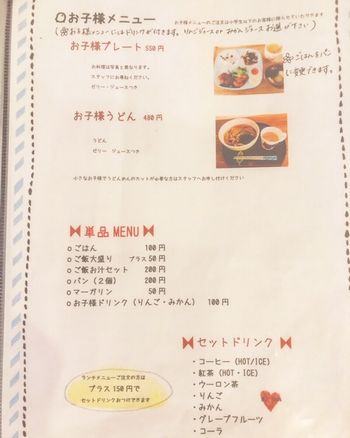 お子様メニュー
お子様メニューのご注文は小学生以下のお客様に限らせていただきます
(お子様メニューにはドリンクが付きます。りんごジュースor みかんジュースお選び下さい)
お子様プレート 550円
ごはんをパンに変更できます。
お料理は写真と異なります。
スタッフにお尋ねください。
ゼリー・ジュースつき
お子様うどん 480円
うどん
ゼリー ジュースつき
小さなお子様でうどんめんのカットが必要な方はスタッフへお申し付けください
単品MENU
ごはん 100円
ご飯大盛り プラス50円
ご飯お汁セット 200円
パン(2個) 200円
マーガリン 50円
お子様ドリンク(りんご・みかん) 100円
セットドリンク
・コーヒー(HOT/ICE)
・紅茶(HOT・ICE)
・ウーロン茶
・りんご
・みかん
・グレープフルーツ
・コーラ
ランチメニューご注文の方は
プラス150円で
セットドリンクおつけできます